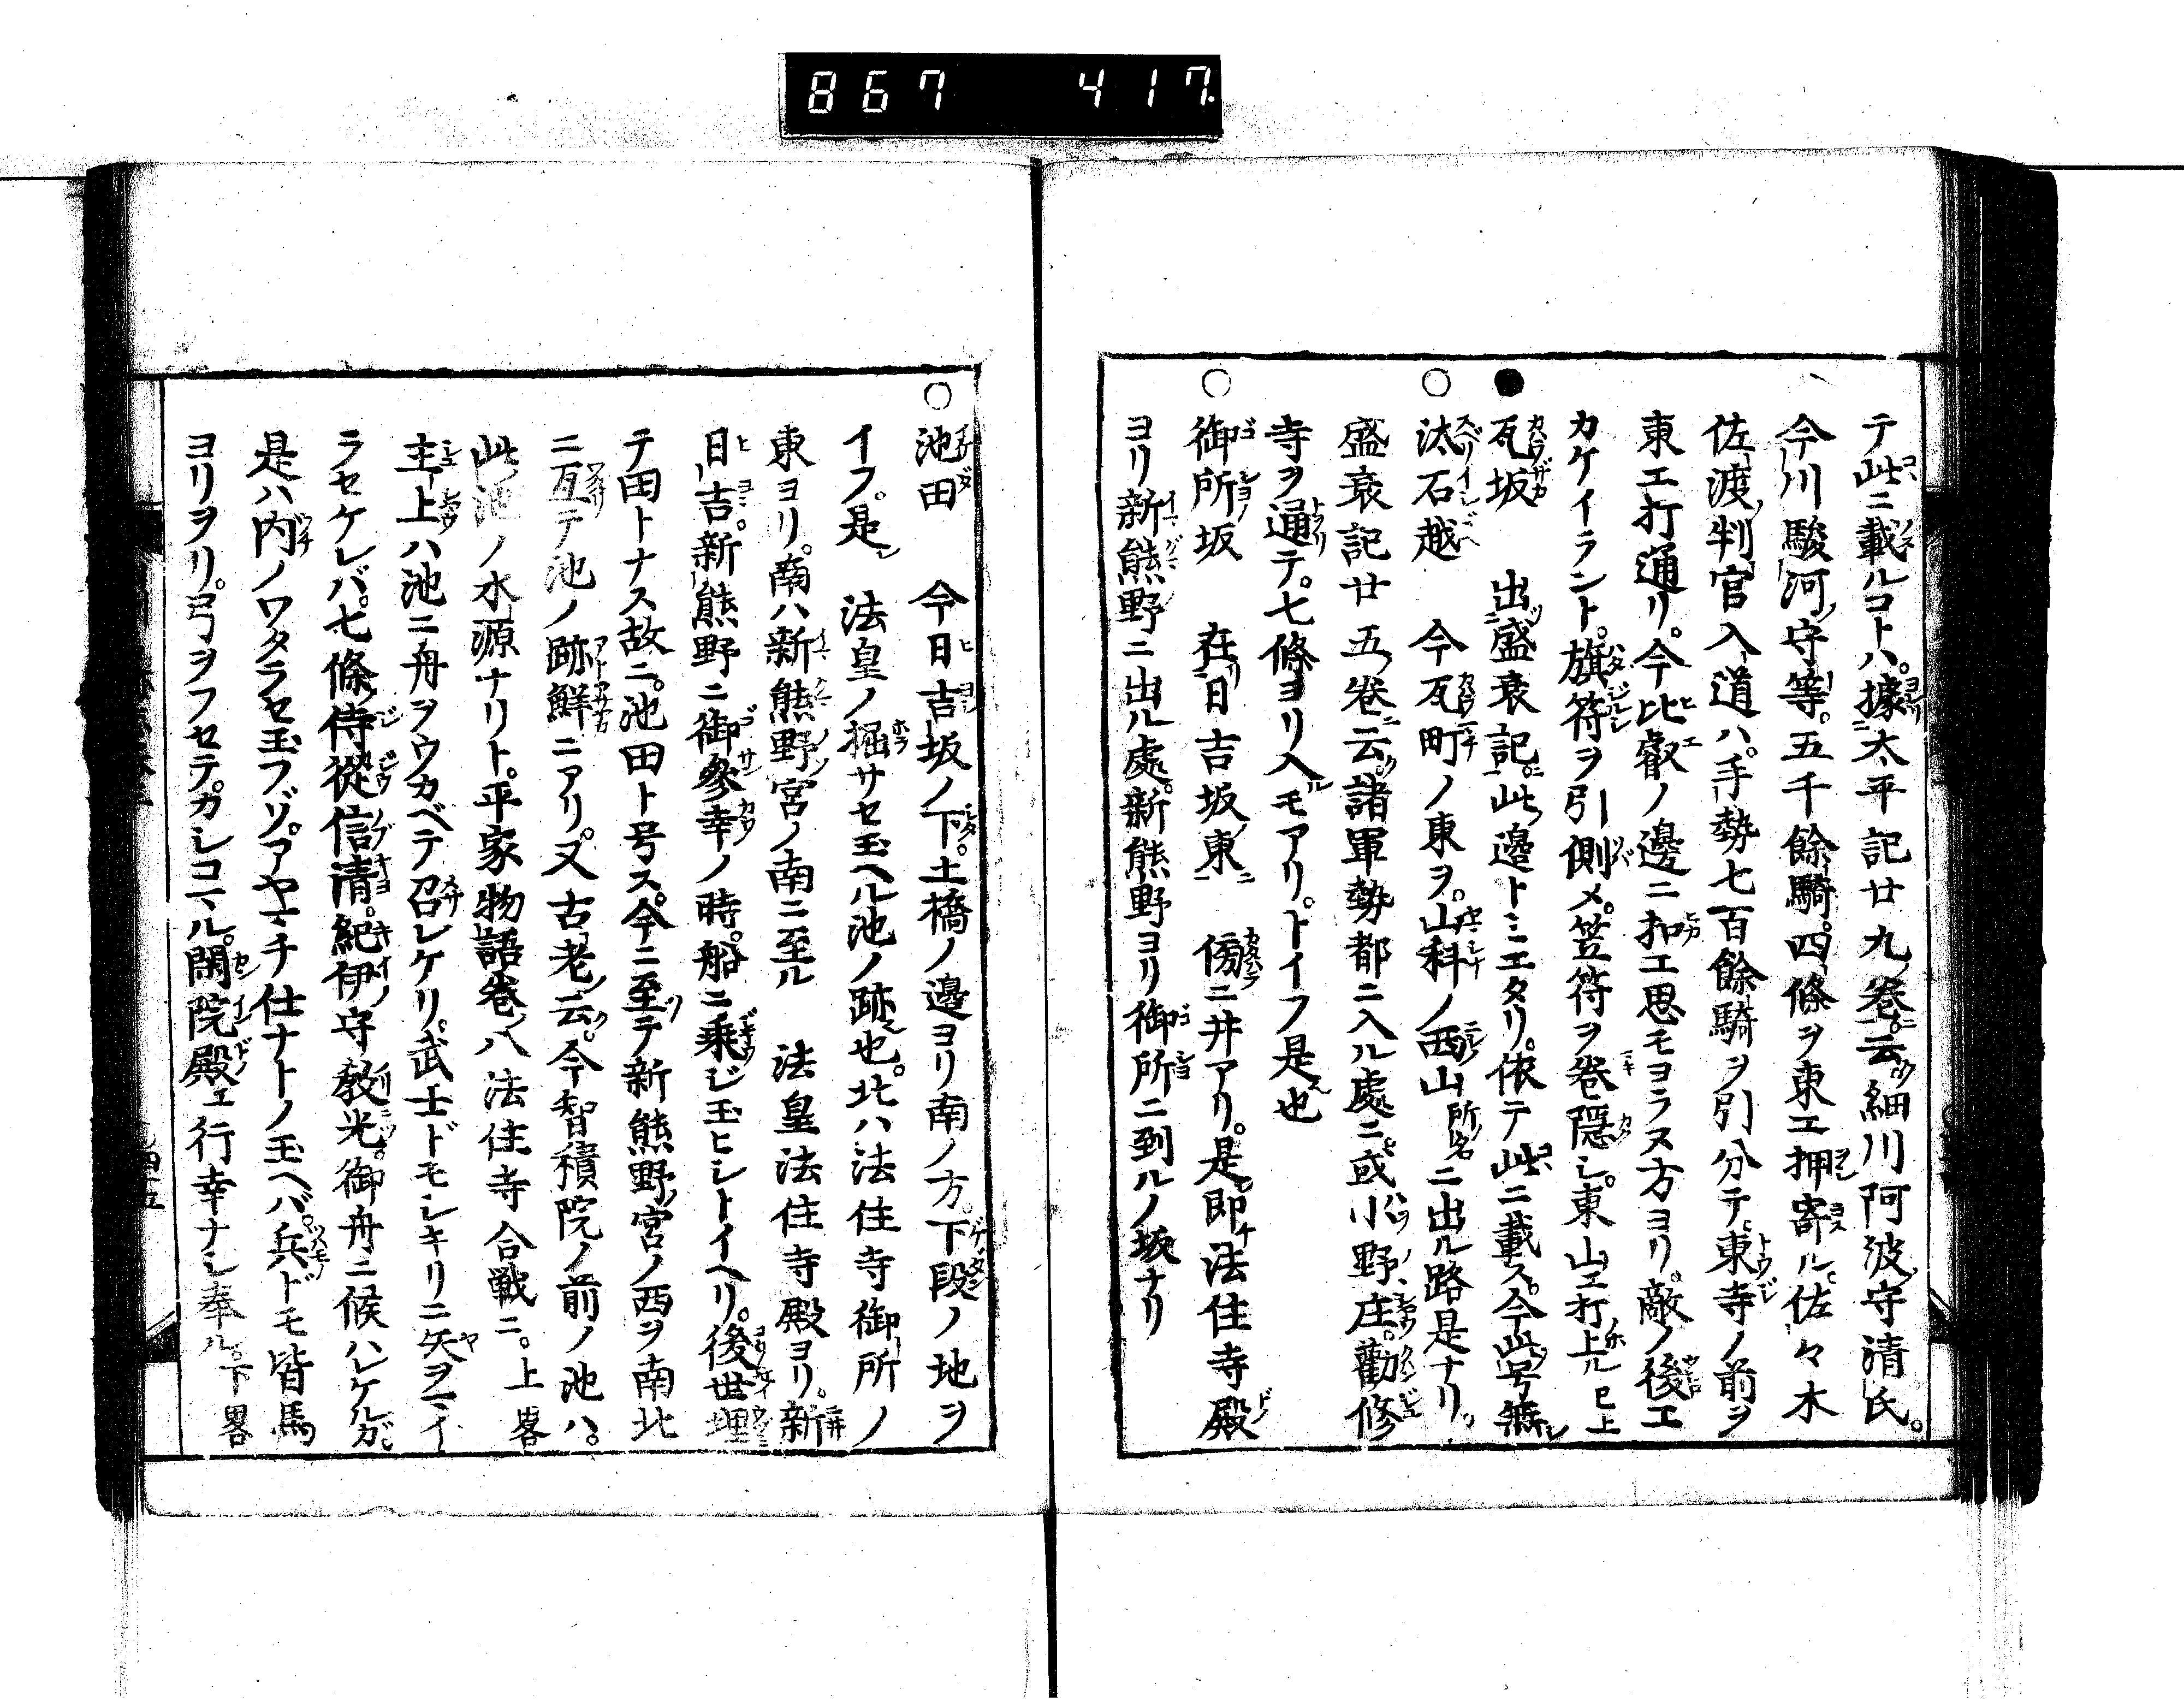 867 417
テ此ニ載ルコトハ。據太平記廿九巻ニ云細川阿波守清氏。
今川駿河守等。五千餘騎。四條ヲ東エ押寄ル。佐々木
佐渡判官入道ハ。手勢七百餘騎ヲ引分テ。東寺ノ前ヲ
東エ打通リ。今比叡ノ邊ニ扣エ思モヨラヌ方ヨリ。敵ノ後エ
カケイラント。旗符ヲ引側メ。笠符ヲ巻隠シ。東山エ打上ル已上
●瓦坂 出盛衰記ニ。此邊トミエタリ。依テ此ニ載ス。今此号無シ
○汰石越 今瓦町ノ東ヲ。山科ノ西山所名ニ出ル路是ナリ
盛衰記廿五巻ニ云。諸軍勢都ニ入ル處ニ。或小野庄。勸修
寺ヲ通テ。七條ヨリ入モアリ。トイフ是也
○御所坂 在日吉坂東ニ 傍ニ井アリ。是即法住寺殿
ヨリ新熊野ニ出ル處。新熊野ヨリ御所ニ到ルノ坂ナリ
○池田 今日吉坂ノ下。土橋ノ邊ヨリ南ノ方。下段ノ地ヲ
イフ。是 法皇ノ掘サセ玉ヘル池ノ跡也。北ハ法住寺御所ノ
東ヨリ。南ハ新熊野宮ノ南ニ至ル 法皇法住寺殿ヨリ。新
日吉。新熊野ニ御參幸ノ時。船ニ乗ジ玉ヒシトイヘリ。後世埋
テ田トナス故ニ。池田ト号ス。今ニ至テ新熊野宮ノ西ヲ南北
ニ亙テ池ノ跡鮮ニアリ。又古老云。今智積院ノ前ノ池ハ。
此池ノ水源ナリト。平家物語巻八法住寺合戦ニ。上畧
主上ハ池ニ舟ヲウカベテ召レケリ。武士ドモシキリニ矢ヲマイ
ラセケレバ。七條侍從信清。紀伊守教光。御舟ニ候ハレケルガ
是ハ内ノワタラセ玉フゾ。アヤマチ仕ナトノ玉ヘバ。兵ドモ皆馬
ヨリヲリ。弓ヲフセテ。カシコマル。閑院殿エ行幸ナシ奉ル。下畧